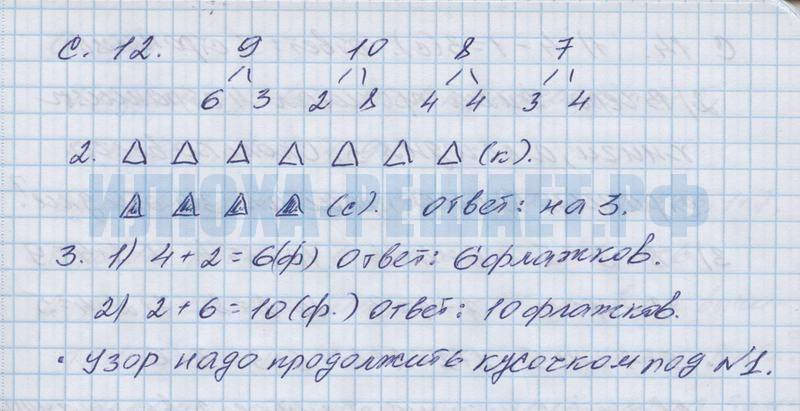 С. 12. 9 10 8 7
6 3 2 8 4 4 3 4
2. (к).
(с). Ответ: на 3.
ИЛЮХА-РЕШАЕТ.РФ
3. 1) 4 + 2 = 6(ф) Ответ: 6 флажков.
2) 2 + 6 = 10 (ф.) Ответ: 10 флажков.
• Узор надо продолжить кусочком под №1.